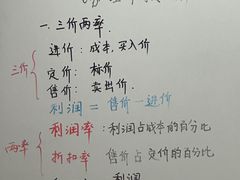 一.三价两率.
三价
进价：成本,买入价
定价：标价
售价：卖出价.
利润 = 售价一进价
两率
利润率：利润占成本的百分比
折扣率 售价占定价的百分比
利润